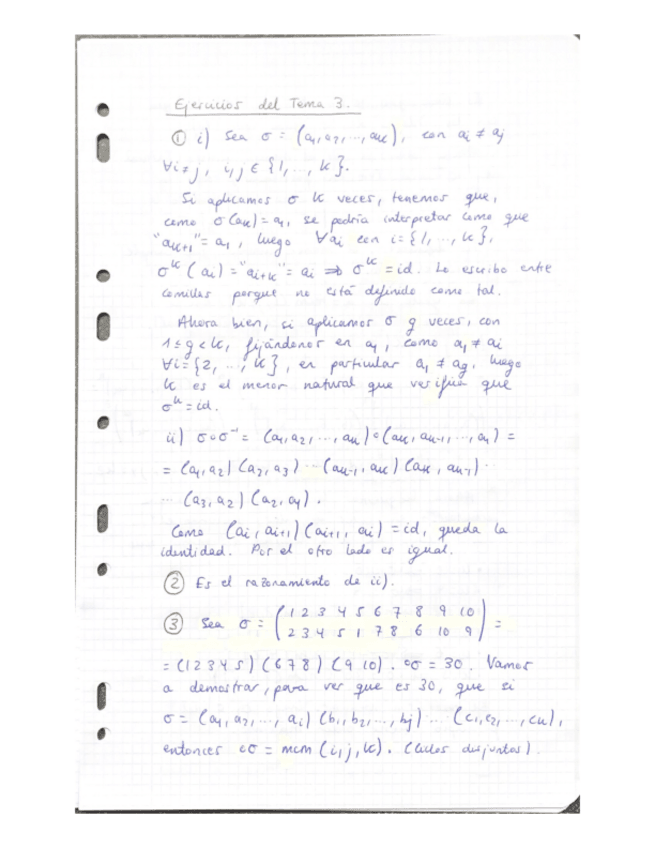 Ejercicios del Tema 3.
① i) Sea σ = (a₁, a₂, ..., aₖ), con aᵢ ≠ aⱼ
∀i≠j, i,j ∈ {1, ..., k}.
Si aplicamos σ k veces, tenemos que,
como σ(aₖ) = a₁, se podría interpretar como que
"aₖ₊₁" = a₁, luego ∀aᵢ con i = {1, ..., k},
σᵏ(aᵢ) = "aᵢ₊ₖ" = aᵢ ⇒ σᵏ = id. Lo escribo entre
comillas porque no está definido como tal.
Ahora bien, si aplicamos σ g veces, con
1 ≤ g < k, fijándonos en a₁, como a₁ ≠ aᵢ
∀i = {2, ..., k}, en particular a₁ ≠ a_g, luego
k es el menor natural que verifica que
σᵏ = id.
ii) σ∘σ⁻¹ = (a₁, a₂, ..., aₖ)∘(aₖ, aₖ₋₁, ..., a₁) =
= (a₁, a₂)(a₂, a₃) ... (aₖ₋₁, aₖ)(aₖ, aₖ₋₁) ...
... (a₃, a₂)(a₂, a₁).
Como (aᵢ, aᵢ₊₁)(aᵢ₊₁, aᵢ) = id, queda la
identidad. Por el otro lado es igual.
② Es el razonamiento de ii).
③ Sea σ = (1 2 3 4 5 6 7 8 9 10
2 3 4 5 1 7 8 6 10 9) =
= (1 2 3 4 5)(6 7 8)(9 10). oσ = 30. Vamos
a demostrar, para ver que es 30, que si
σ = (a₁, a₂, ..., aᵢ)(b₁, b₂, ..., bⱼ) ... (c₁, c₂, ..., cₖ),
entonces oσ = mcm (i, j, k). (Ciclos disjuntos).